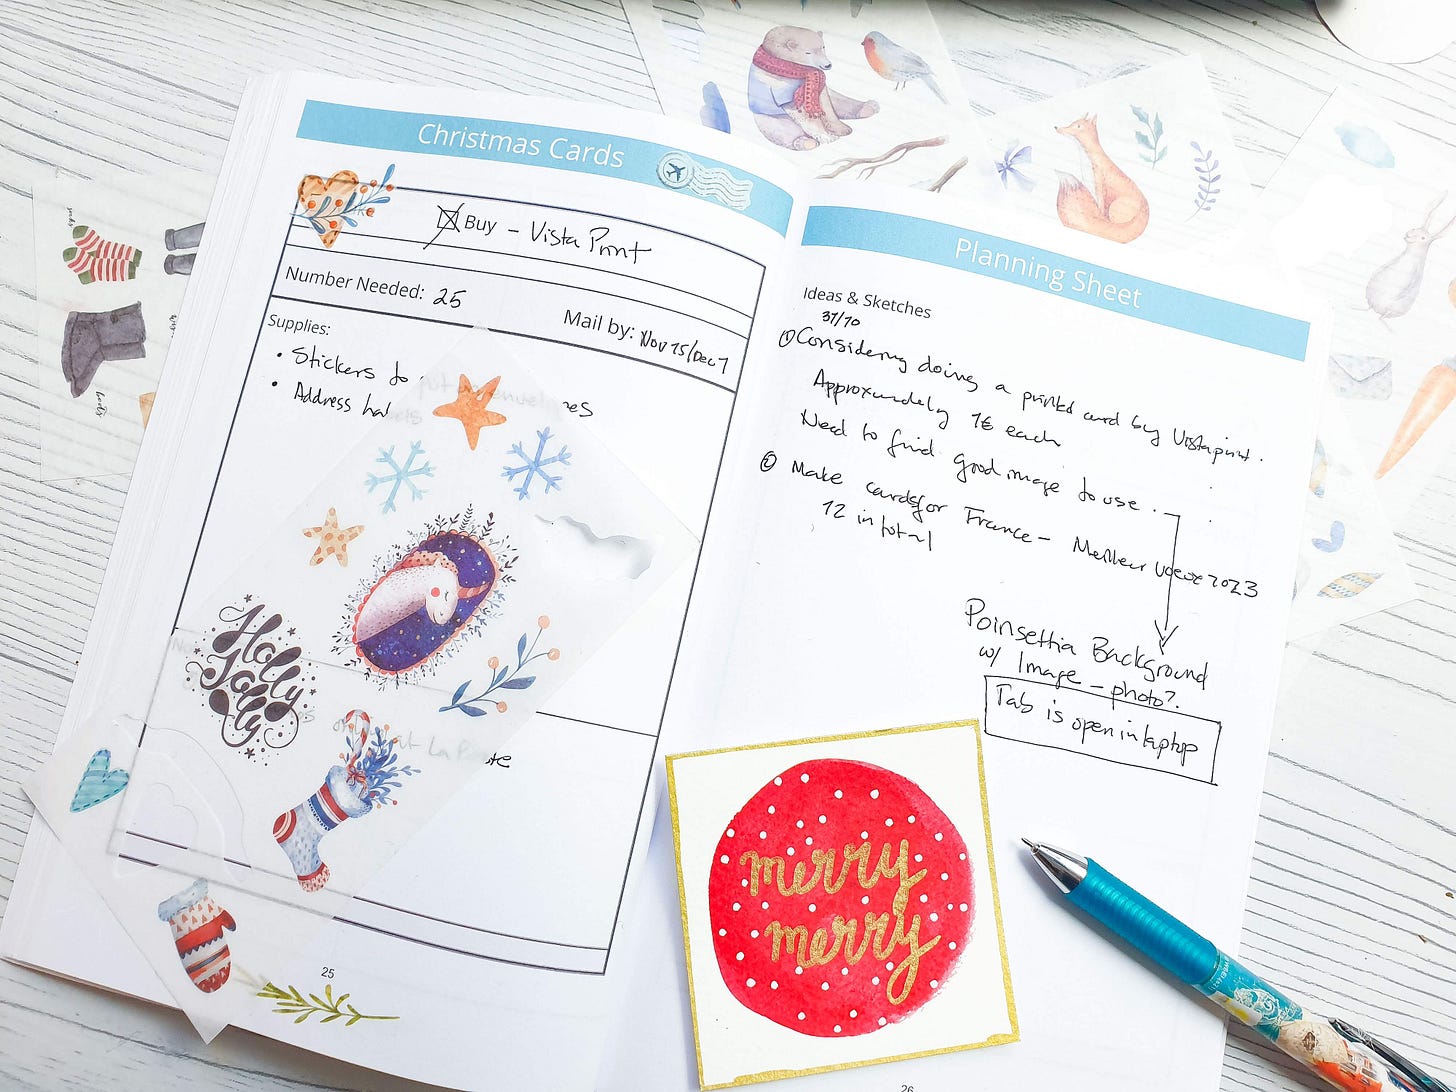 Christmas Cards
Buy – Vista Print
Number Needed: 25
Mail by: Nov 15/Dec 1
Supplies:
• Stickers to put on envelopes
• Address labels
Holly
Jolly
at La Poste
25
Planning Sheet
Ideas & Sketches
31/10
① Considering doing a printed card by Vistaprint.
Approximately 1€ each
Need to find good image to use.
② Make cards for France – Meilleur Voeux 2023
12 in total
Poinsettia Background
w/ Image – photo?
Tab is open in laptop
merry
merry
26